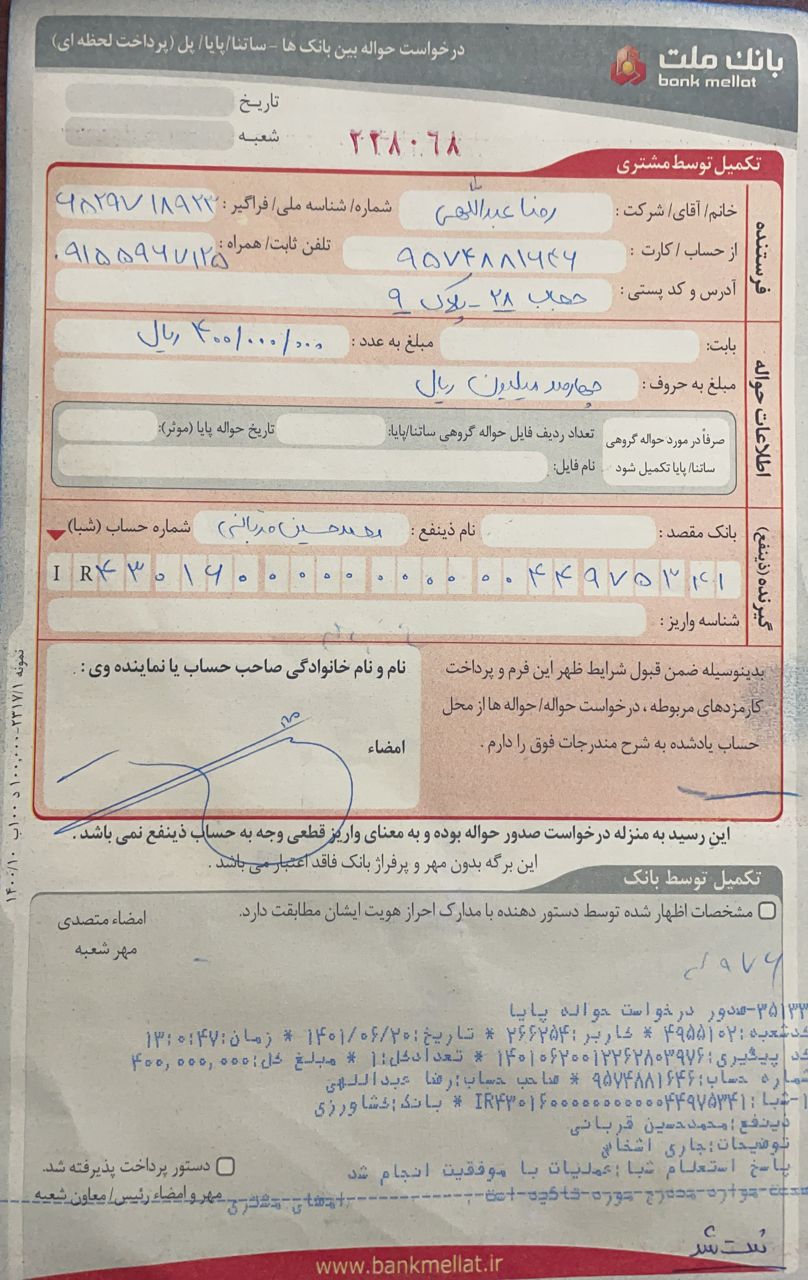 درخواست حواله بین بانک ها - ساتنا/پایا/ پل (پرداخت لحظه ای)
بانک ملت
bank mellat
تاریخ
شعبه
۲۲۸۰۶۸
تکمیل توسط مشتری
فرستنده
خانم/ آقای/ شرکت : رضا عبداللهی شماره/ شناسه ملی/ فراگیر :
از حساب / کارت : ۹۵۷۴۸۸۱۶۴۶ تلفن ثابت/ همراه : ۰۹۱۵۵۹۶۷۱۲۵
آدرس و کد پستی : حجاب ۲۸ - پلاک ۹
اطلاعات حواله
بابت: مبلغ به عدد : ۴۰۰/۰۰۰/۰۰۰ ریال
مبلغ به حروف : چهارصد میلیون ریال
صرفاً در مورد حواله گروهی ساتنا/ پایا تکمیل شود
تعداد ردیف فایل حواله گروهی ساتنا/پایا: تاریخ حواله پایا (موثر):
نام فایل:
گیرنده (ذینفع)
بانک مقصد : نام ذینفع : محمدحسین قربانی شماره حساب (شبا)
IR ۴۳۰۱۶۰۰۰۰۰۰۰۰۰۰۰۴۴۹۷۵۳۴۱
شناسه واریز :
بدینوسیله ضمن قبول شرایط ظهر این فرم و پرداخت
کارمزدهای مربوطه ، درخواست حواله/ حواله ها از محل
حساب یادشده به شرح مندرجات فوق را دارم .
نام و نام خانوادگی صاحب حساب یا نماینده وی :
امضاء
این رسید به منزله درخواست صدور حواله بوده و به معنای واریز قطعی وجه به حساب ذینفع نمی باشد .
این برگه بدون مهر و پرفراژ بانک فاقد اعتبار می باشد .
نمونه ۲۳۱۷/۱-۱۰۰,۰۰۰ د ۱۰۰ب ۱۴۰۰/۱۰
تکمیل توسط بانک
مشخصات اظهار شده توسط دستور دهنده با مدارک احراز هویت ایشان مطابقت دارد.
امضاء متصدی
مهر شعبه
۳۵۱۳۳-صدور درخواست حواله پایا
کدشعبه:۴۹۵۵۱۰۲ * کاربر:۲۶۶۲۵۴ * تاریخ:۱۴۰۱/۰۶/۲۰ * زمان:۱۳:۰:۴۷
کد پیگیری:۱۴۰۱۰۶۲۰۰۱۲۲۶۲۸۰۳۹۷۶ * تعدادکل:۱ * مبلغ کل:۴۰۰,۰۰۰,۰۰۰
شماره حساب:۹۵۷۴۸۸۱۶۴۶ * صاحب حساب:رضا عبداللهی
۱-شبا:IR۴۳۰۱۶۰۰۰۰۰۰۰۰۰۰۰۴۴۹۷۵۳۴۱ * بانک:کشاورزی
ذینفع:محمدحسین قربانی
توضیحات:جاری اشخاص
پاسخ استعلام شبا:عملیات با موفقیت انجام شد
صحت موارد مندرج مورد تائید است. امضای مشتری
دستور پرداخت پذیرفته شد.
مهر و امضاء رئیس/ معاون شعبه
ثبت شد
www.bankmellat.ir